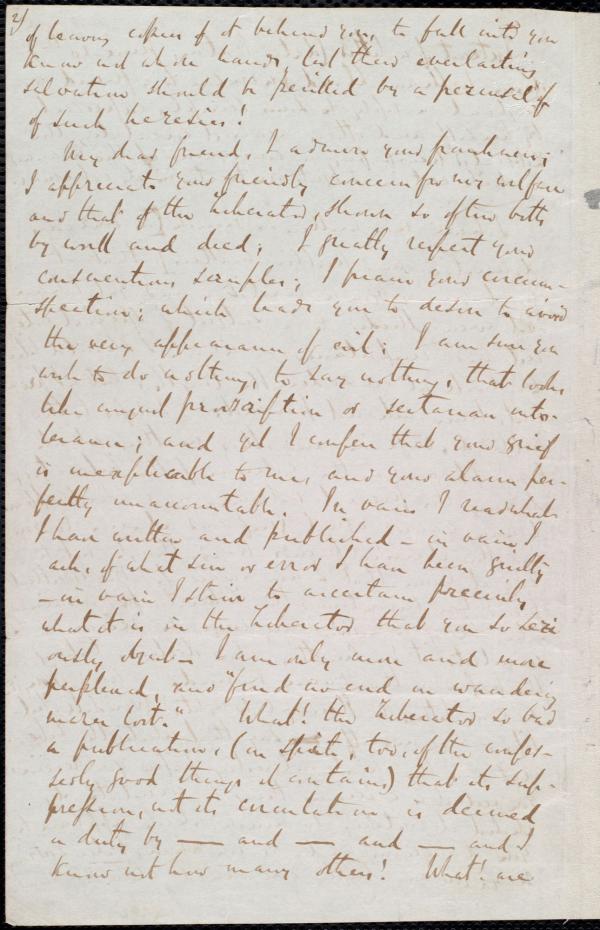 2/
of leaving copies of it behind you, to fall into you
know not whose hands, lest their everlasting
salvation should be perilled by a perusal of
of such heresies!
My dear friend, I admire your frankness;
I appreciate your friendly concern for my welfare
and that of the Liberator, shown so often both
by word and deed; I greatly respect your
conscientious scruples; I praise your circum-
spection; which leads you to desire to avoid
the very appearance of evil; I am sure you
wish to do nothing, to say nothing, that looks
like unjust proscription or sectarian into-
lerance; and yet I confess that your grief
is inexplicable to me, and your alarm per-
fectly unaccountable. In vain I read what
I have written and published — in vain I
ask, of what sin or error I have been guilty
— in vain I strive to ascertain precisely
what it is in the Liberator that you so seri-
ously dread — I am only more and more
perplexed, and "find no end in wandering
mazes lost." What! the Liberator so bad
a publication, (in spite, too, of the confes-
sedly good things it contains) that its sup-
pression, not its circulation, is deemed
a duty by — and — and — and I
know not how many others! What! are